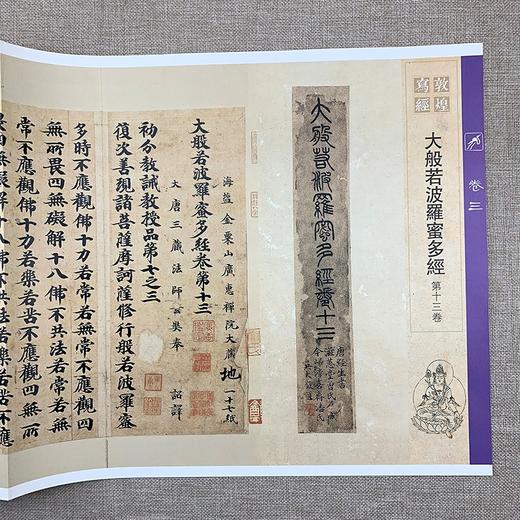 卷三
敦煌
寫經
大般若波羅蜜多經
第十三卷
大般若波羅蜜多經卷第十三
唐經生書
海鹽金粟山廣惠禪院大藏 地 一十七紙
大般若波羅蜜多經卷第十三
大唐三藏法師玄奘奉 詔譯
初分教誡教授品第七之三
復次善現諸菩薩摩訶薩修行般若波羅蜜
多時不應觀佛十力若常若無常不應觀四
無所畏四無礙解十八佛不共法若常若無
常不應觀佛十力若樂若苦不應觀四無所
畏四無礙解十八佛不共法若樂若苦不應